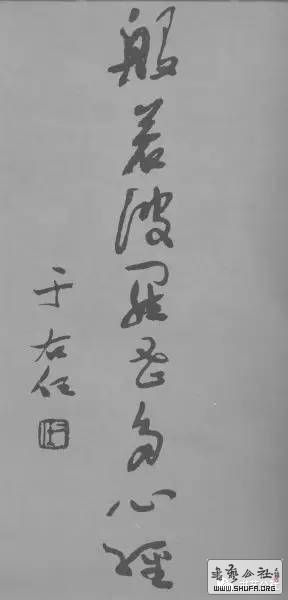 般若波羅蜜多心經
于右任
書藝公社
WWW.SHUFA.ORG